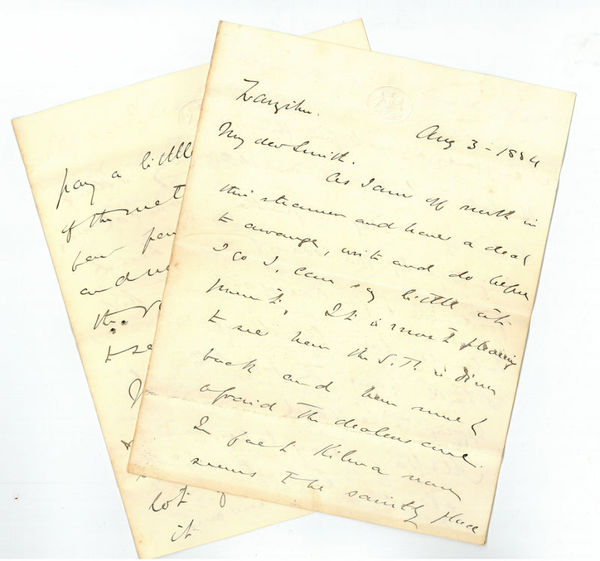 Zanzibar.
Aug 3 - 1884
My dear Smith.
As I am off north in
this steamer and have a deal
to arrange, write and do before
I go I can say little at
present. It is most pleasing
to see how the S.T. is
back and how much
afraid the dealers are.
In fact Kilwa now
seems to be place
pay a little
of the
and
the
to se
lot
it